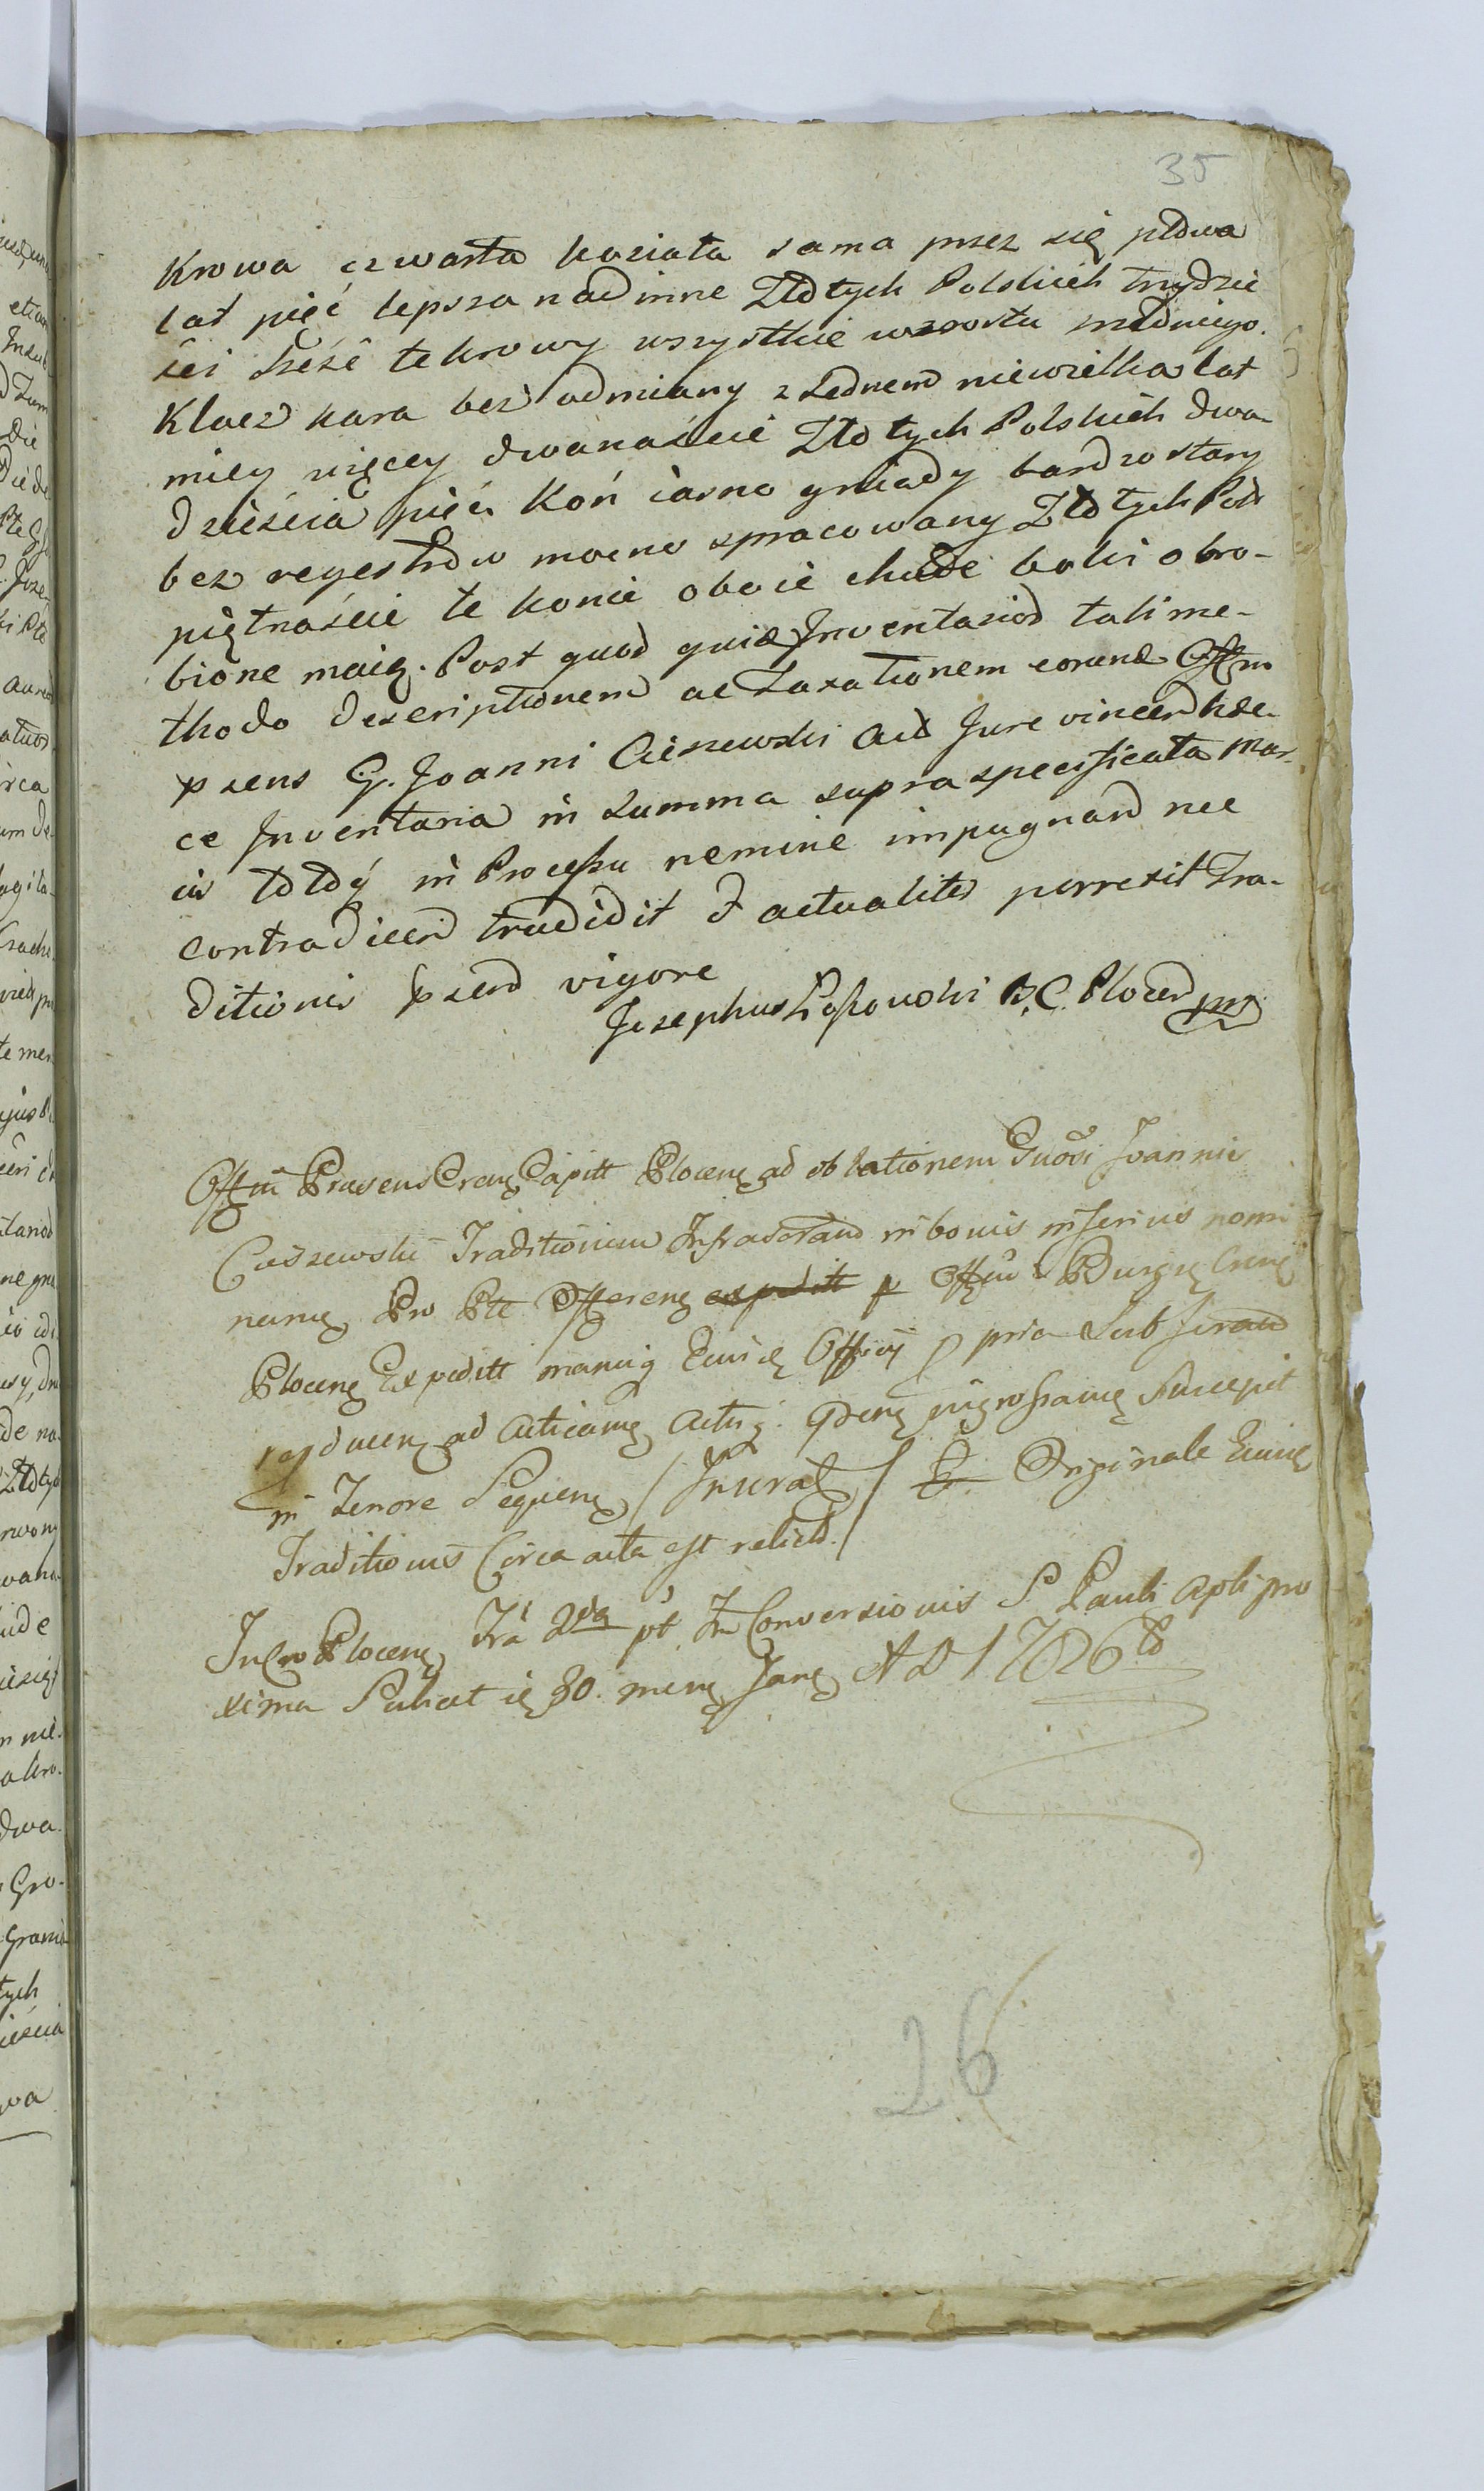 35
Krowa czwarta kosiata sama przez się płowa
lat pięć lepsza nad inne Złotych Polskich trzydzie
sci sześć te krowy wszystkie wzrostu srzedniego.
Klacz kara bez odmiany z Lednem niewielka lat
miey więcey dwanaście Złotych Polskich dwa-
dzieścia pięć Koń iasno gniady bardzo stary
bez regestrów mocno spracowany Złotych Pols
piętnaście te konie oboie chude boki obro-
bione maią. Post quod quidē Inventariōd tali me-
thodo descriptionem ac Taxationem eorund Offm
psens G. Joanni Cieszewski Act Jure vincend hae-
ce Inventaria in summa supra specificata Mar-
cis in Processu nemine impugnand nec
contradicend tradidit & actualiter porrexit Tra-
ditionis psend vigore
Josephus B. C. Plocen mp
Offm Praesens Cren Capitt Plocen ad oblationem Gnosi Joannis
Cieszewski Traditionem Infrascrand in bonis inferius nomi
nanę Pro Pte Offerenę expeditt p Offm Burgrę Crenę
Plocenę Expeditt manuq Eiusdę Officij ppria Subscrand
ad acticanę Actisq. ingrossanę Suscepit
in Tenore Sequenę / Inserat / Et Originale Eiusdę
Traditionis Circa acta est relict./
In Cro Plocenę Fra 2da pt Fm Conversionis S Pauli Apli pro
xima Scilicet ię 30. mens Janę A D 1786to
26